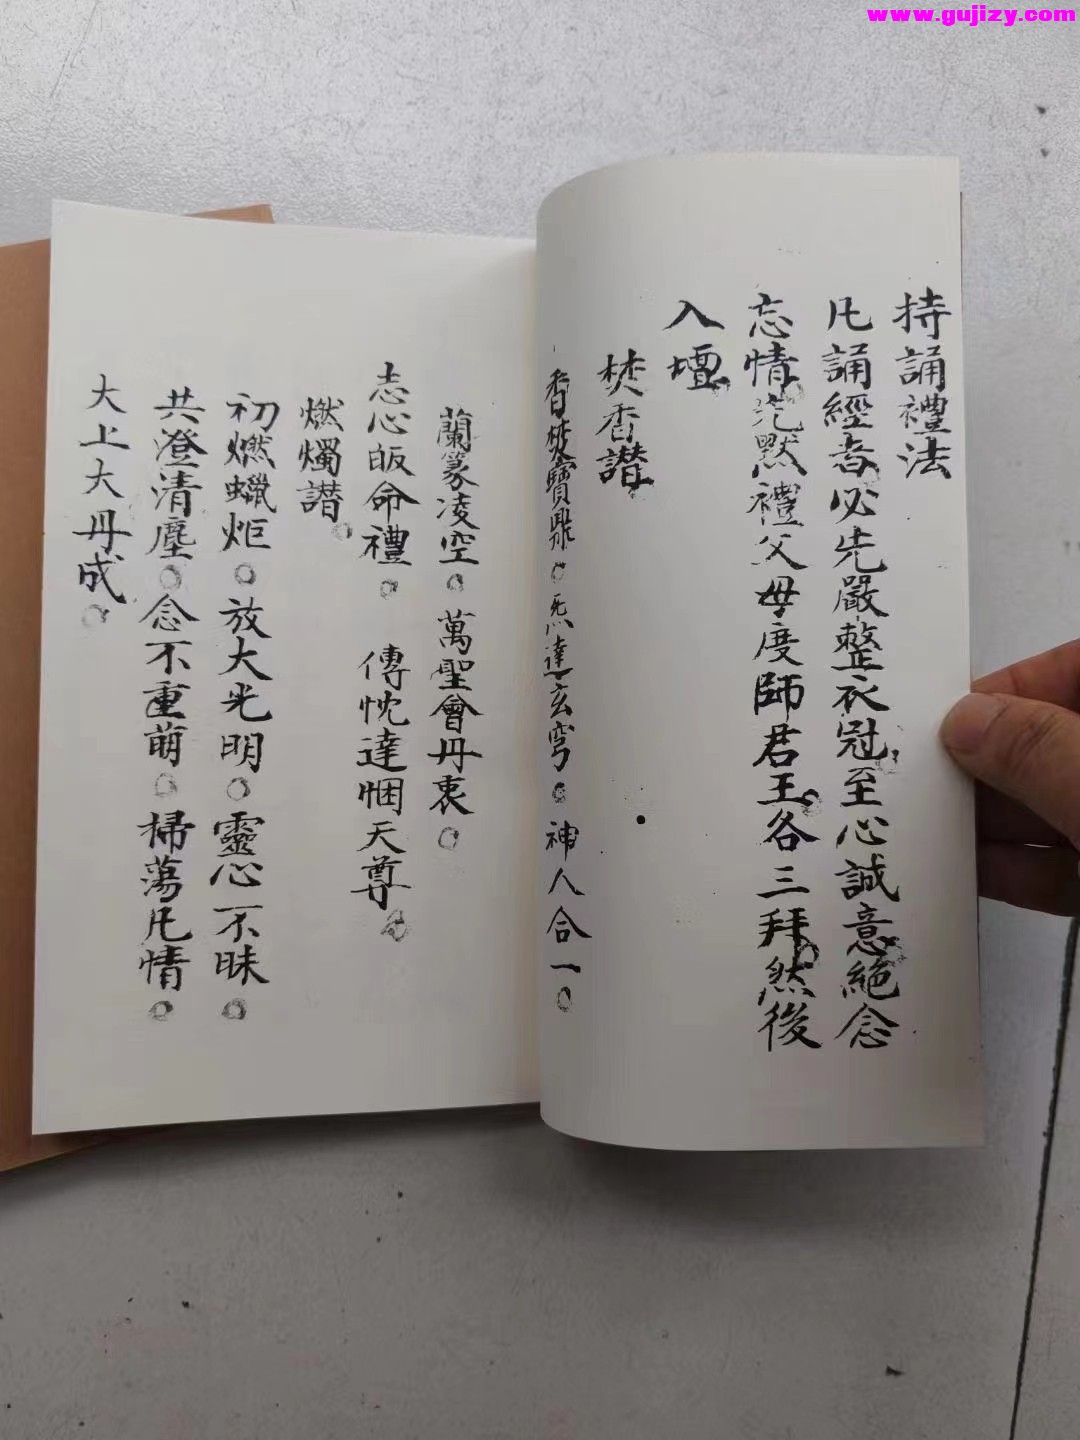 www.gujizy.com
持誦禮法
凡誦經者必先嚴整衣冠至心誠意絕念
忘情先默禮父母度師君王各三拜然後
入壇
焚香讃
香焚寶鼎○炁達玄穹○神人合一○
蘭篆凌空○萬聖會丹衷○
志心皈命禮○ 傳忱達悃天尊○
燃燭讃○
初燃蠟炬○放大光明○靈心不昧○
共澄清塵○念不重萌○掃蕩凡情○
大上大丹成○